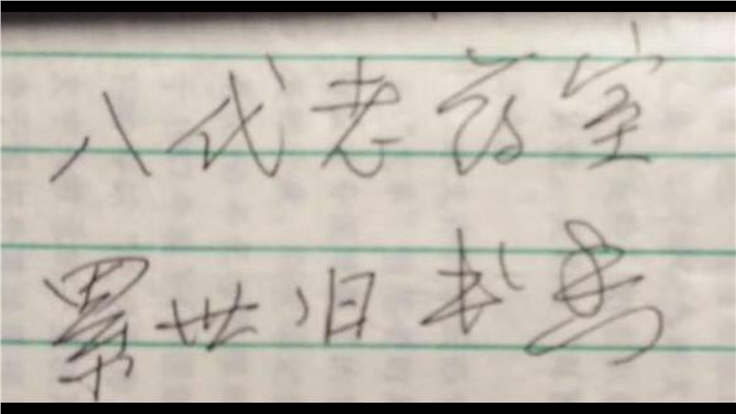 八代老药室
累世旧书香